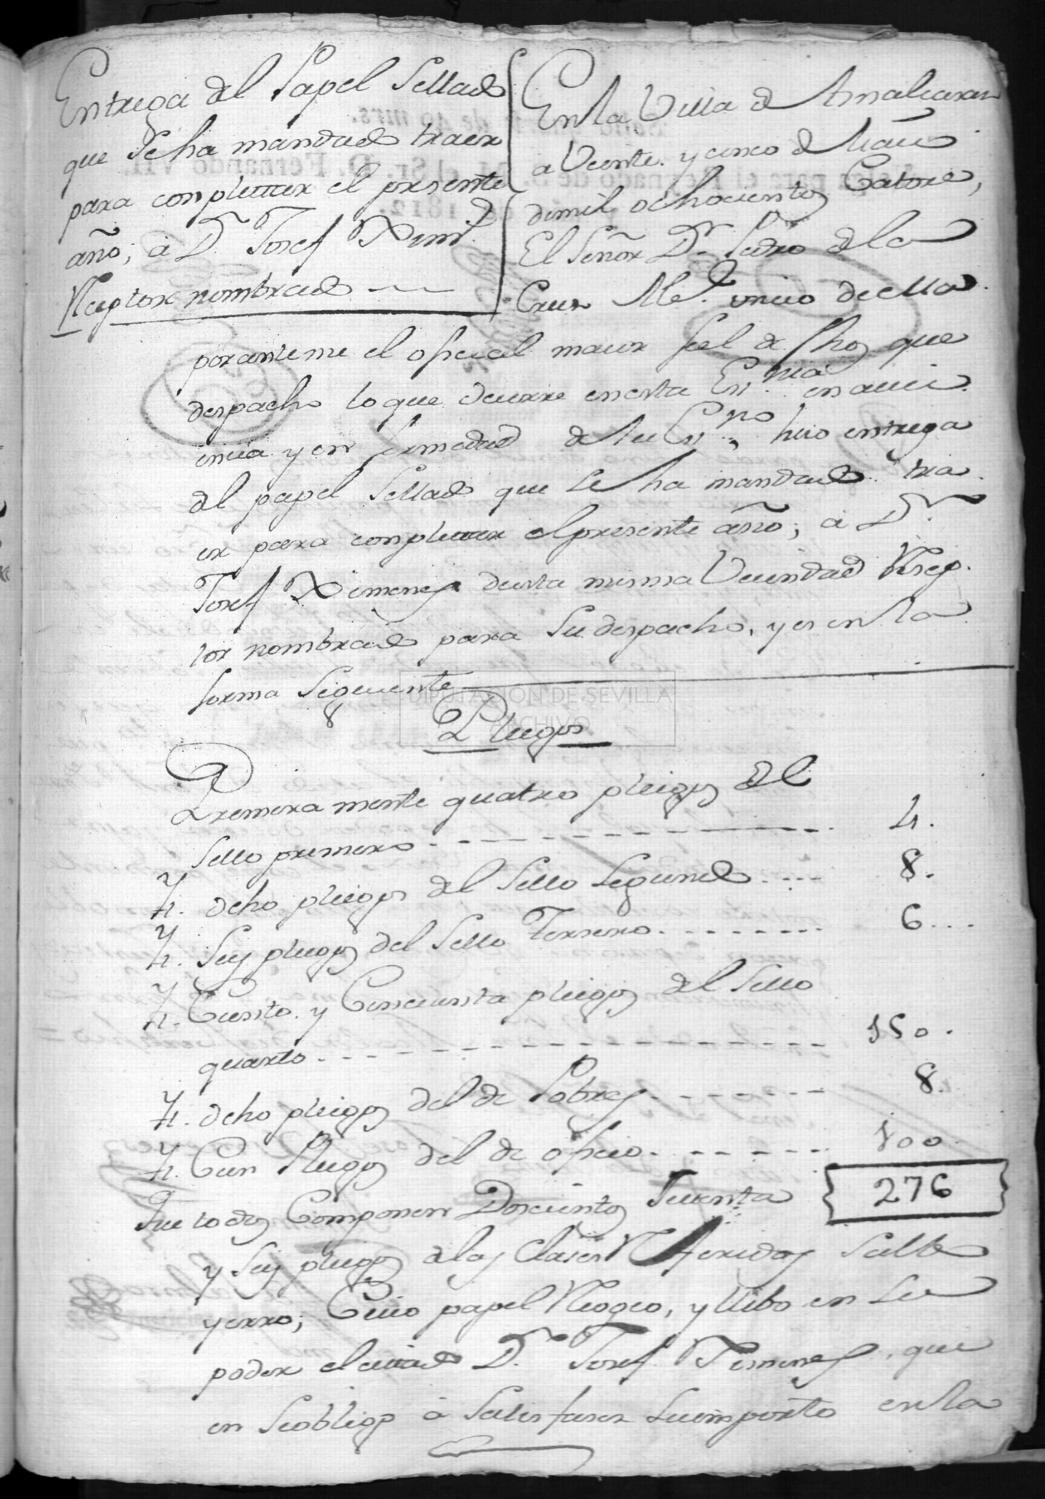 Entrega del Papel Sellado
que Seha mandado traer
para conpletar el presente
año; a Dn. Josef Ximz.
Receptor nombrado
En la Villa de Aznalcazar
a Veinte y cinco de Marzo
demil ochocientos Catorce,
El Señor Dn. Pedro dela
Cruz Alce. unico de ella
porantemi el oficial maior fiel de fhos que
despacho lo que Ocurre enesta Esnia. en
y enfermedad desu Esno. hizo entrega
del papel Sellado que se ha mandado tra
er para conpletar elpresente año; a Dn.
Josef Ximenes deesta misma Vecindad Resep
tor nombrado para Su despacho, y es en la
forma Siguiente
DIPUTACIÓN DE SEVILLA
ARCHIVO
Pliegos
Primera mente quatro pliegos del
Sello primero 4.
Yt. ocho pliegos del Sello Segundo 8.
Yt. Seis pliegos del Sello Tersero 6
Yt. Ciento y Cincuenta pliegos del Sello
quarto 150.
Yt. ocho pliegos del de Pobres 8.
Yt. Cien Pliegos del de oficio 100
276
Que todos Componen Doscientos Setenta
y Seis pliegos delas Clases Referidas Salbo
yerro; Cuio papel Recogio, y llebo en su
poder elcitado Dn. Josef Ximenes, que
en Seobligo a Satisfaser Suimporte en la